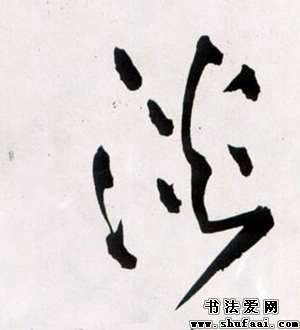 淡
书法爱网
www.shufaai.com